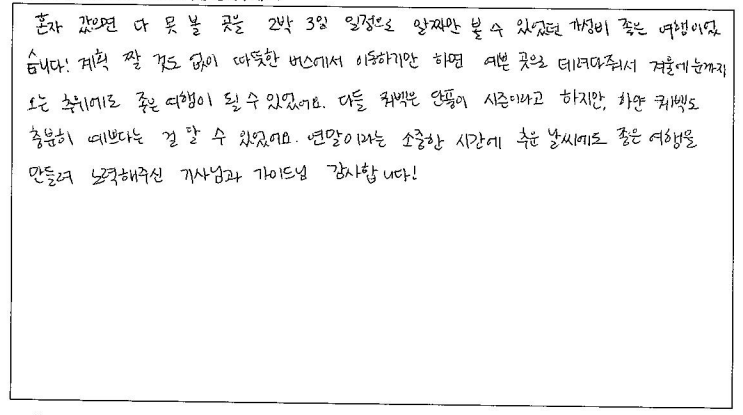 혼자 갔으면 다 못 볼 곳을 2박 3일 일정으로 알짜만 볼 수 있었던 가성비 좋은 여행이었
습니다! 계획 짤 것도 없이 따뜻한 버스에서 이동하기만 하면 예쁜 곳으로 데려다줘서 겨울에 눈까지
오는 추위에도 좋은 여행이 될 수 있었어요. 다들 퀘벡은 단풍이 시즌이라고 하지만, 하얀 퀘벡도
충분히 예쁘다는 걸 알 수 있었어요. 연말이라는 소중한 시간에 추운 날씨에도 좋은 여행을
만들려 노력해주신 기사님과 가이드님 감사합니다!